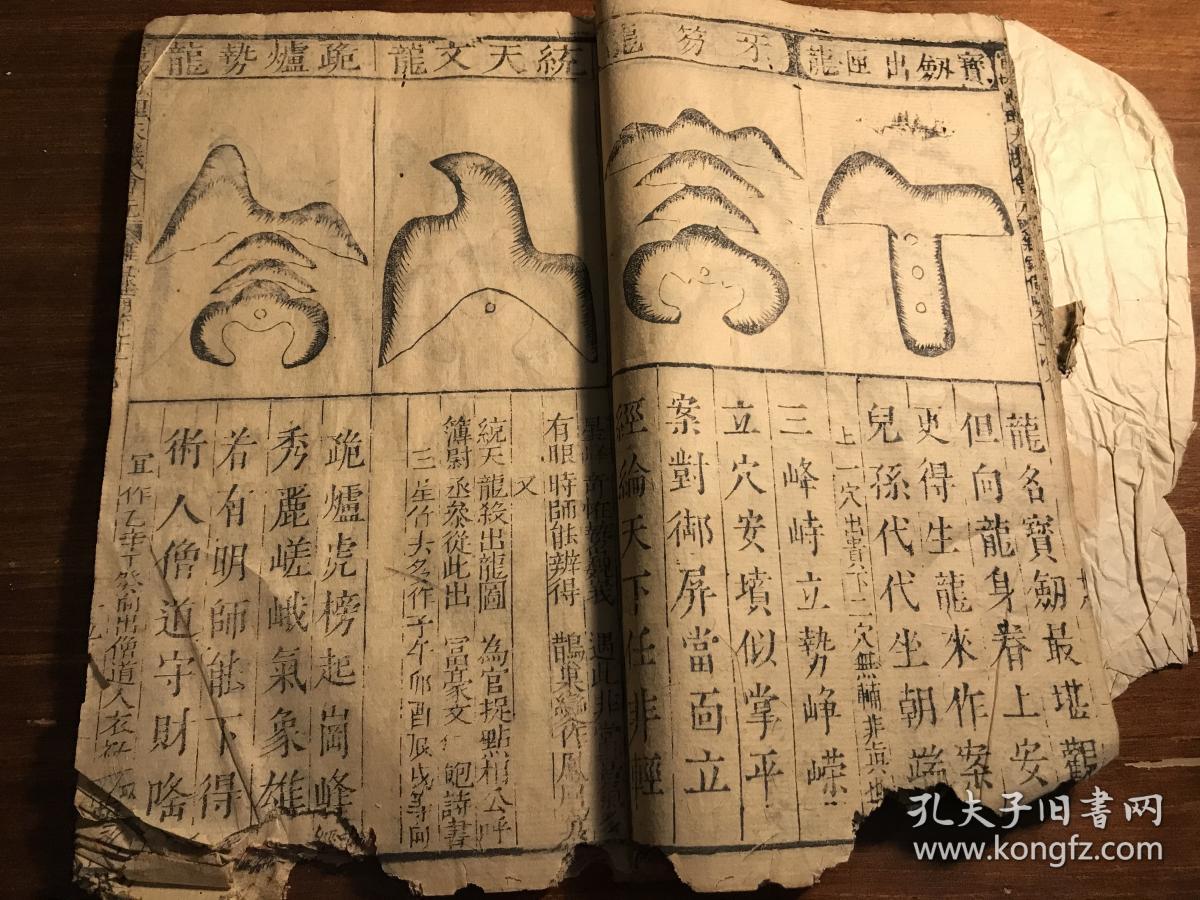 寶劔出匣龍
龍名寶劔最堪觀
但向龍身脊上安
更得生龍來作案
兒孫代代坐朝端
上一穴出貴下二穴無輔非真也
牙笏龍
三峰峙立勢峥嶸
立穴安墳似掌平
案對御屏當面立
經綸天下任非輕
統天文龍
有眼時師能辨得
又
統天龍殺出龍圖 為官提點相公呼
簿尉丞叅從此出 冨豪文 飽詩書
作子午卯酉辰戌
跪爐勢龍
跪爐虎榜起崗峰
秀麗嵯峨氣象雄
若有明師能下得
術人僧道守財
宜作乙辛丁癸向出僧道人
孔夫子旧书网
www.kongfz.com